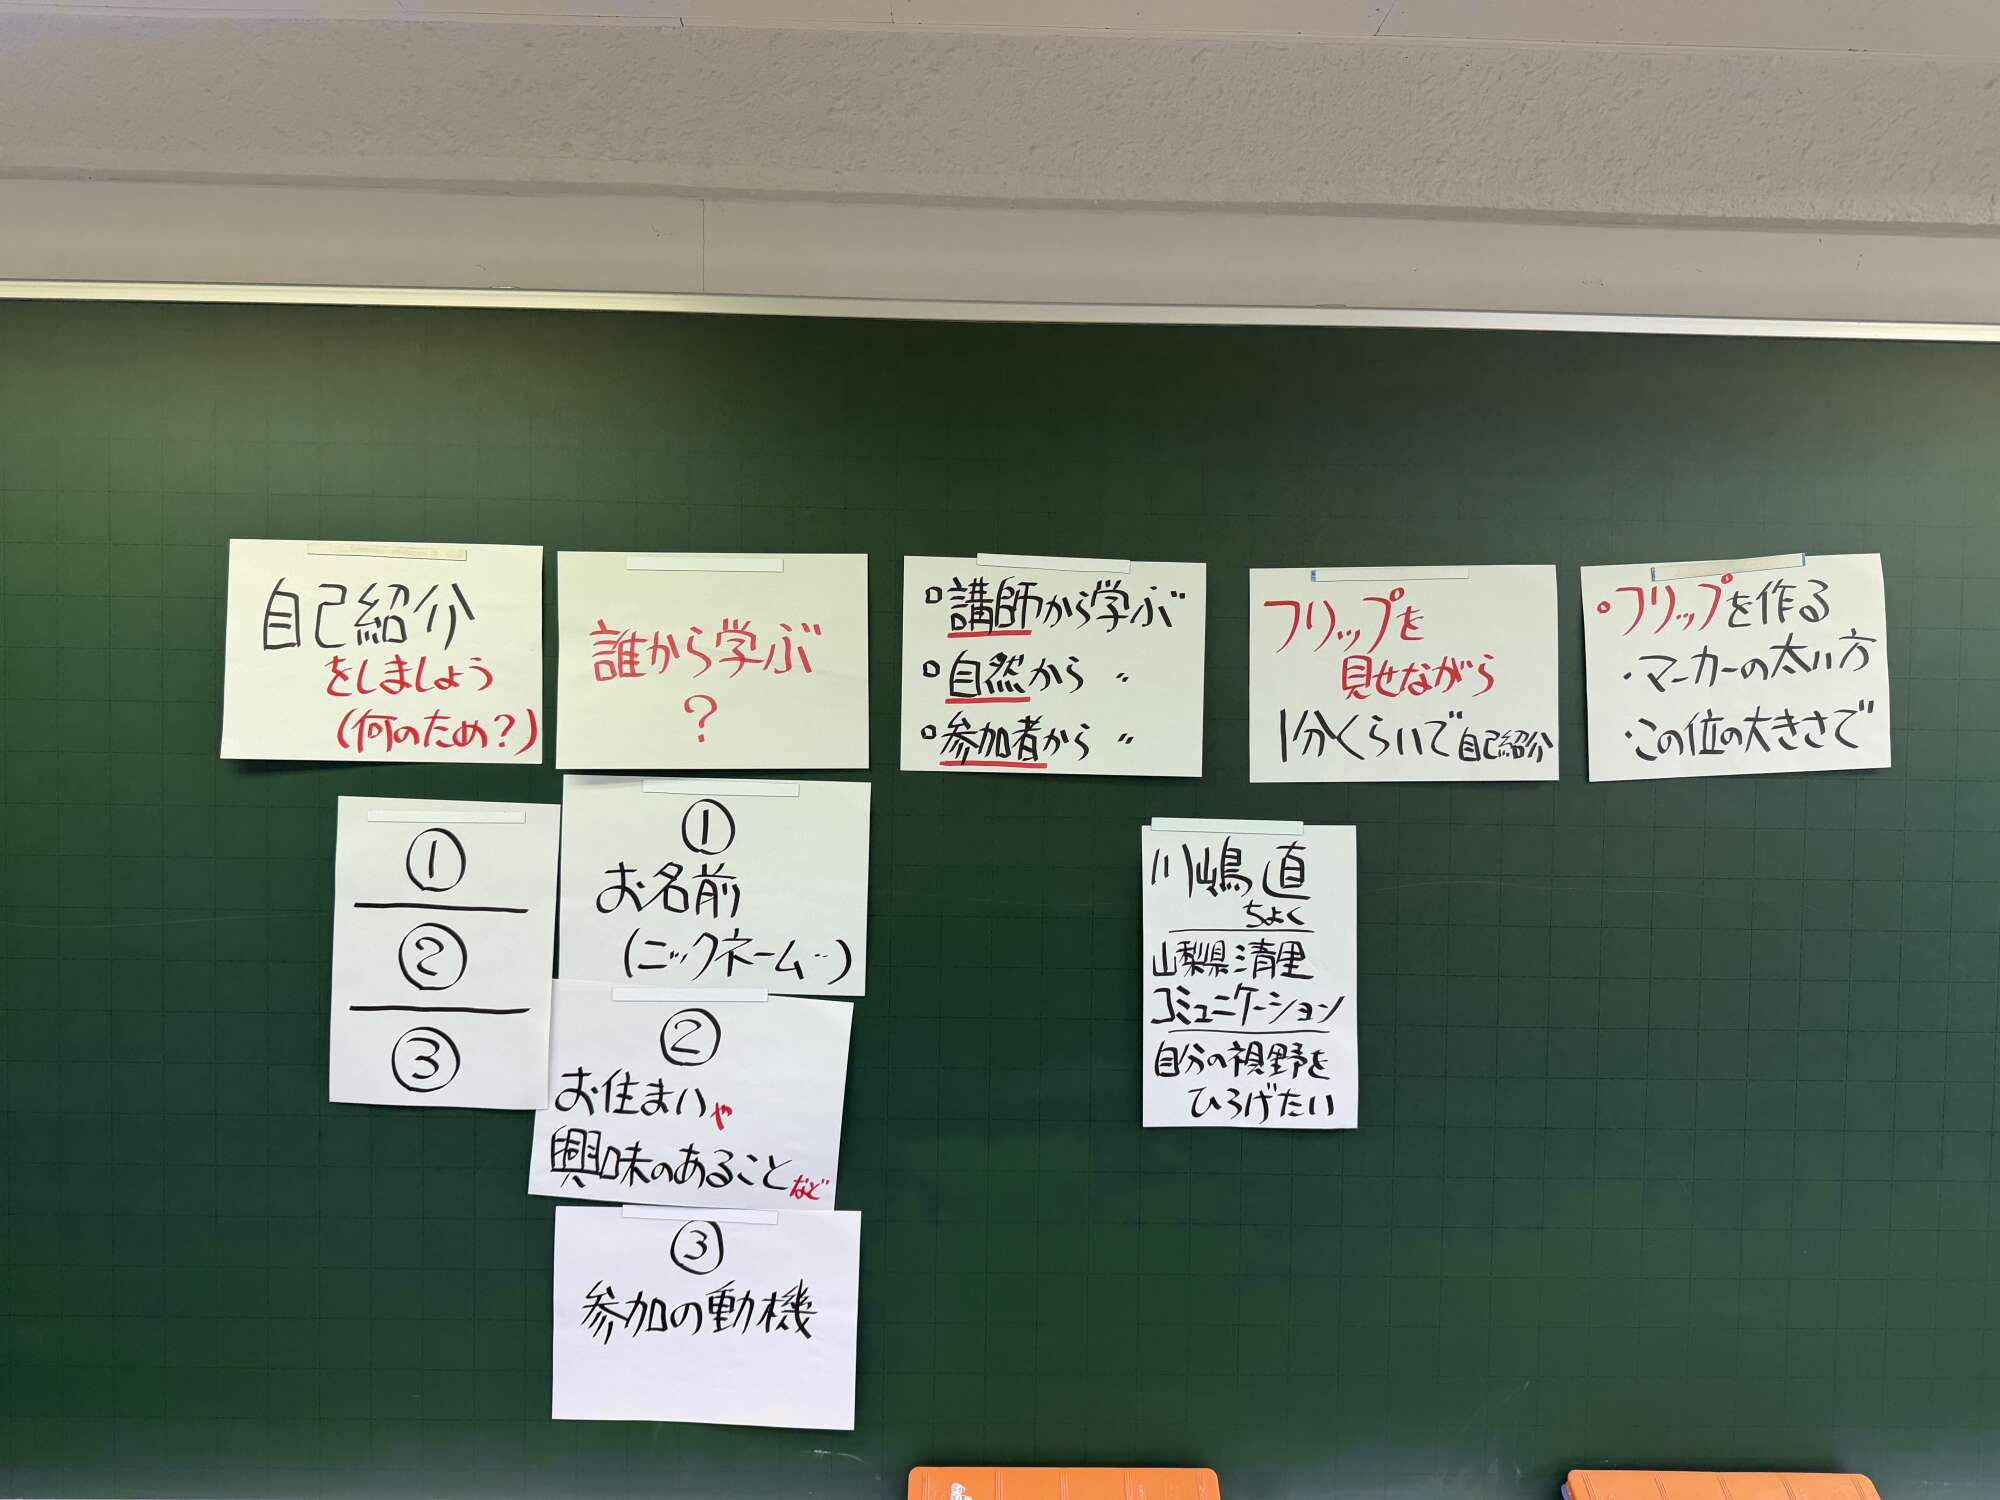 自己紹介
をしましょう
(何のため?)
誰から学ぶ
?
講師から学ぶ
自然から 〃
参加者から 〃
フリップを
見せながら
1分くらいで自己紹介
フリップを作る
・マーカーの太い方
・この位の大きさで
①
②
③
①
お名前
(ニックネーム‥)
②
お住まいや
興味のあることなど
③
参加の動機
川嶋 直
ちよく
山梨県清里
コミュニケーション
自分の視野を
ひろげたい